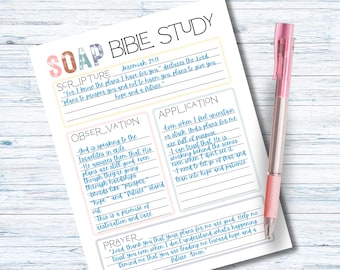 SOAP BIBLE STUDY
SCRIPTURE
Jeremiah 29:11
"For I know the plans I have for you," declares the Lord
"plans to prosper you and not to harm you, plans to give you
hope and a future"
OBSERVATION
God is speaking to the
Israelites in exile
plans are still good even
though they're going
through hardships
words like "prosper"
"hope" and "future" stand
out
This is a promise of
restoration and care
APPLICATION
Even when I feel uncertain
or stuck, God's plans for me
are full of purpose
I can trust that He is
working behind the scenes
even when I don't see it
I need to let go of fear and
PRAYER
Lord thank you that your plans for me are good. Help me
trust you even when I don't understand what's happening
Remind me that you are leading me toward hope and a
future. Amen